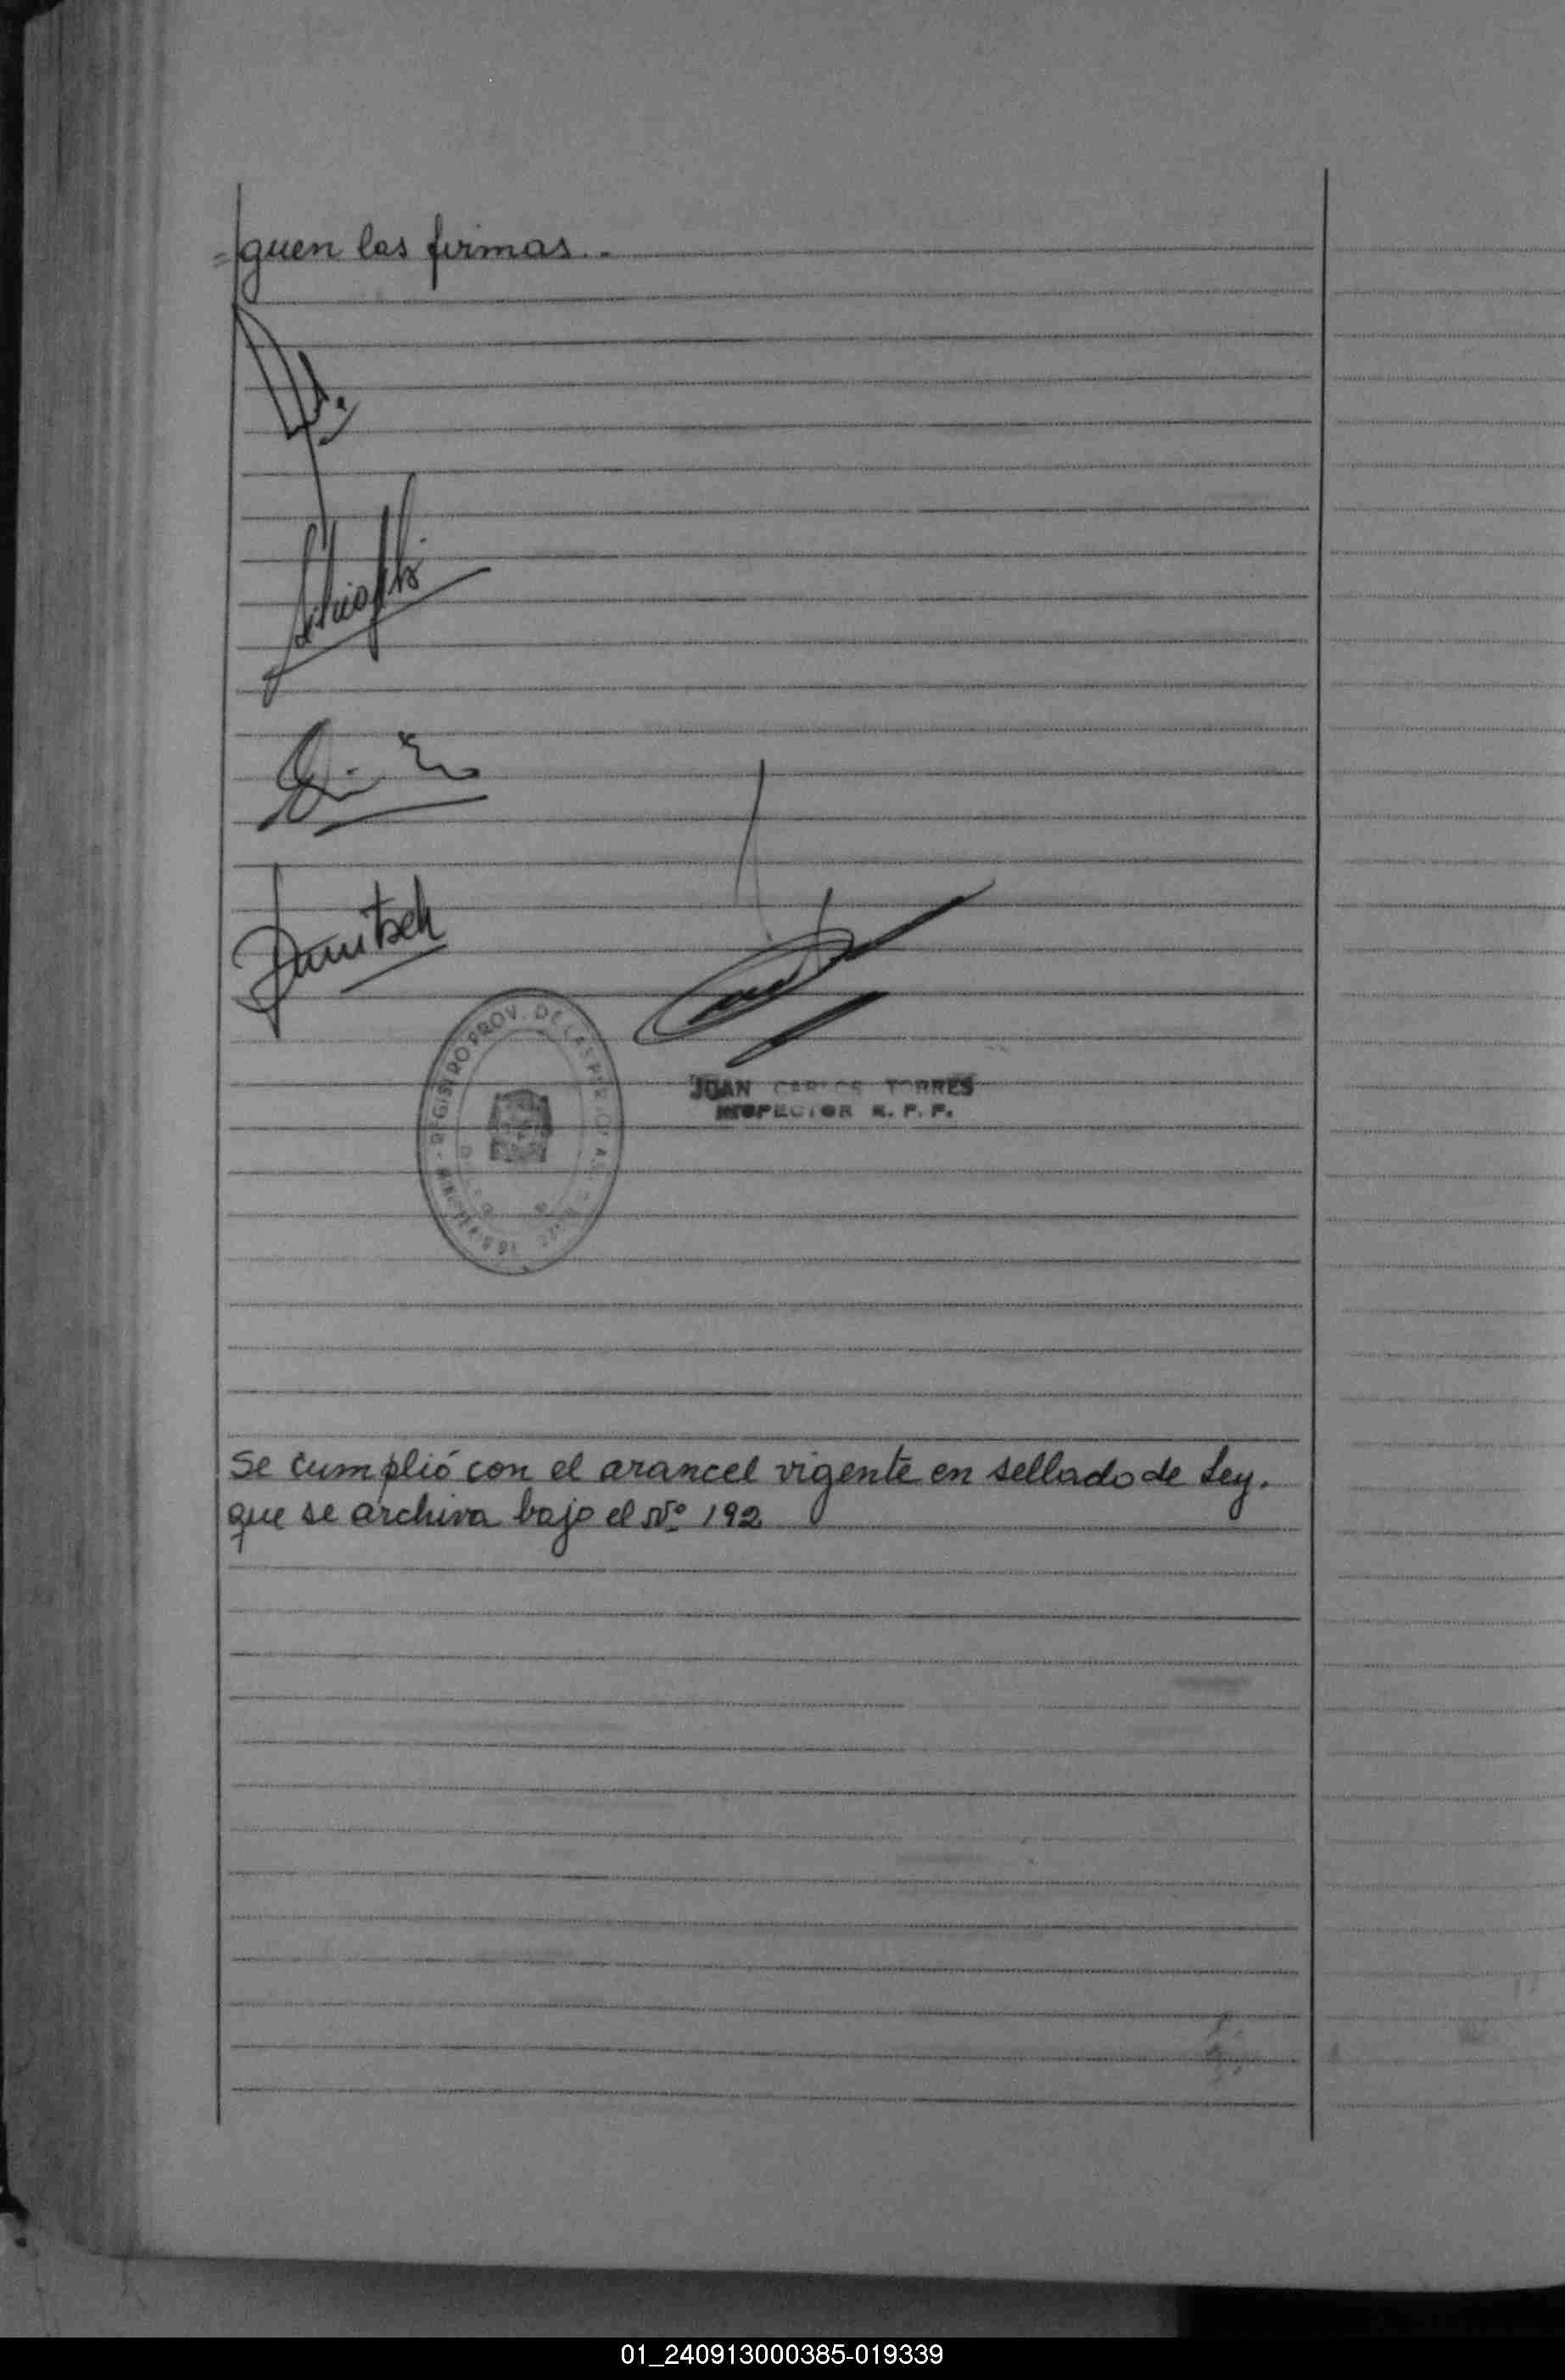 = guen las firmas..
REGISTRO PROV. DE LAS PERSONAS
JUAN CARLOS TORRES
INSPECTOR R. P. P.
Se cumplió con el arancel vigente en sellado de Ley.
que se archiva bajo el Nº 192
01_240913000385-019339